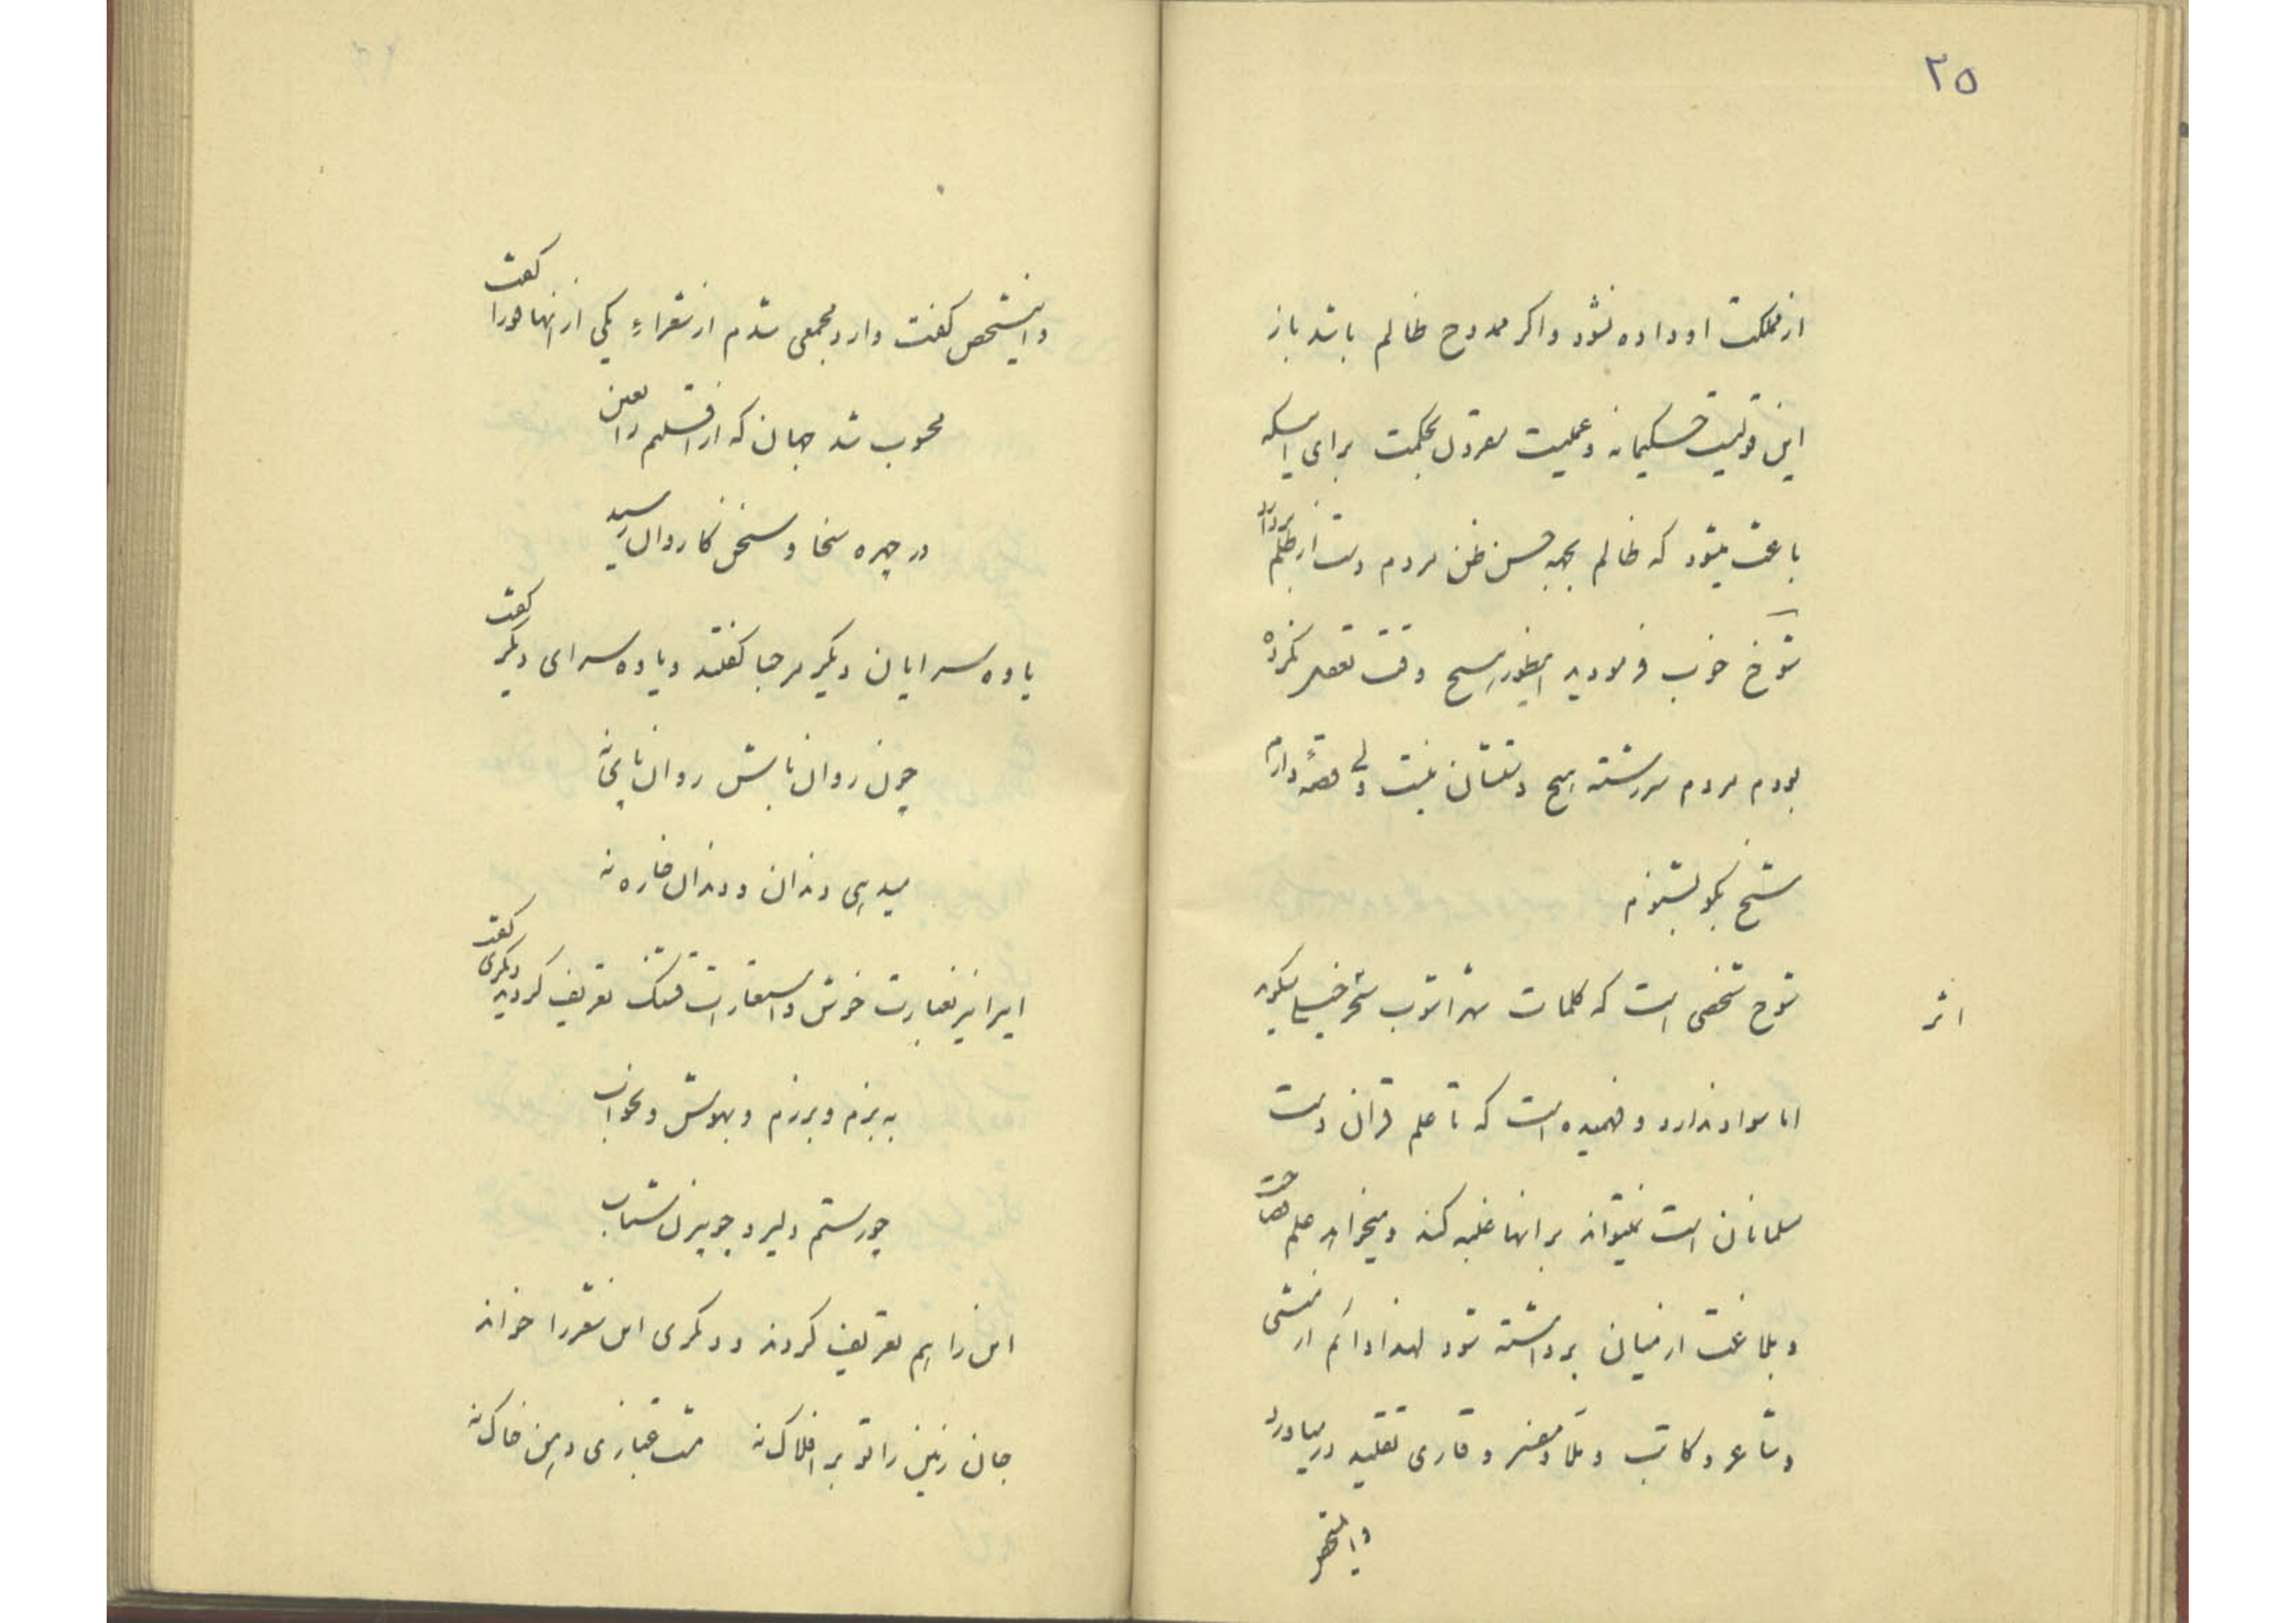 ۲۵
از مملکت او داده نشود و اگر ممدوح ظالم باشد باز
این قولیست حکیمانه و عملیت مقرون بحکمت برای اینکه
باعث میشود که ظالم بجهة حسن ظن مردم دست از ظلم بردارد
شوخ خوب فرمودید اینطور هیچ وقت تعقل نکرده
بودم مردم سررشته هیچ دستشان نیست ولی قصهٔ دارم
شیخ بگو بشنوم
شوخ شخصی است که کلمات اثر
اما سواد ندارد و فهمیده است که تا علم قرآن دست
مسلمانان است نمیتواند بر انها غلبه کند و میخواهد علم فصاحت
و بلاغت از میان برداشته شود لهذا دائم از منشی
و شاعر و کاتب و ملا و مفسر و قاری تقلید درمیاورد
و اینشخص
و اینشخص گفت وارد مجمعی شدم از شعراء یکی از انها هورا گفت
محبوب شد جهان که از اقلیم راعین
در چهره سخا و سخن کاروان رسید
یاوه سرایان دیگر مرحبا گفتند و یاوه سرای دیگر گفت
چون روان تابش روان
میدهی دندان و دندان خاره نه
ایرانیز بعبارت خوش و استعارات قشنگ تعریف کردند دیگری گفت
به بزم و برزم و بهوش و بخواب
چو رستم دلیر و چو بیژن شتاب
این را هم تعریف کردند و دیگری این شعر را خواند
جان زمین را تو بر افلاک نه مشت غباری دهن خاک نه